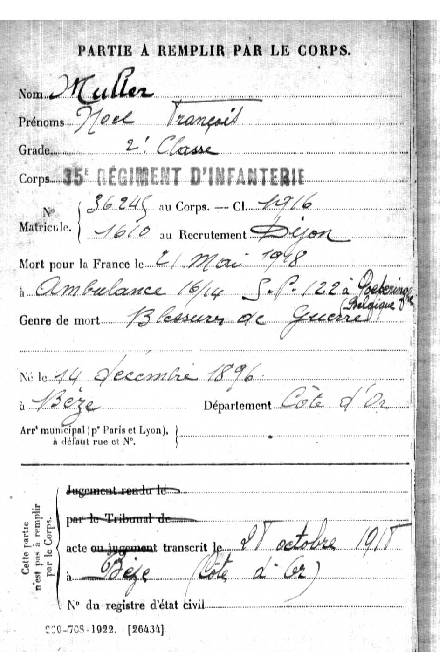 PARTIE À REMPLIR PAR LE CORPS.
Nom Muller
Prénoms Noel François
Grade 2e Classe
Corps 35e RÉGIMENT D'INFANTERIE
N° Matricule. { 36.245 au Corps. — Cl. 1916
1610 au Recrutement Dijon
Mort pour la France le 21 Mai 1918
à Ambulance 16/14 S.P. 122 à
(Belgique)
Genre de mort Blessures de Guerre
Né le 14 decembre 1896
à Bèze Département Côte d'Or
Arrt municipal (pr Paris et Lyon), à défaut rue et N°.
Cette partie n'est pas à remplir par le Corps.
Jugement rendu le
par le Tribunal de
acte ou jugement transcrit le 28 octobre 1918
à Bèze (Côte d'Or)
N° du registre d'état civil
-708-1922. [26434]